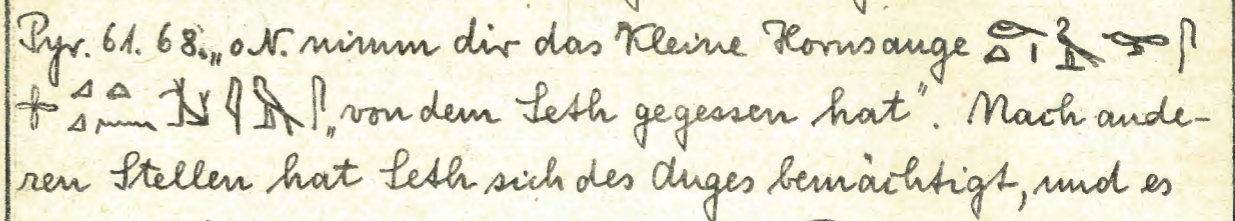 Pyr. 61. 68. „o N. nimm dir das kleine Hornsauge
„von dem Seth gegessen hat“. Nach ande-
ren Stellen hat Seth sich des Auges bemächtigt, und es